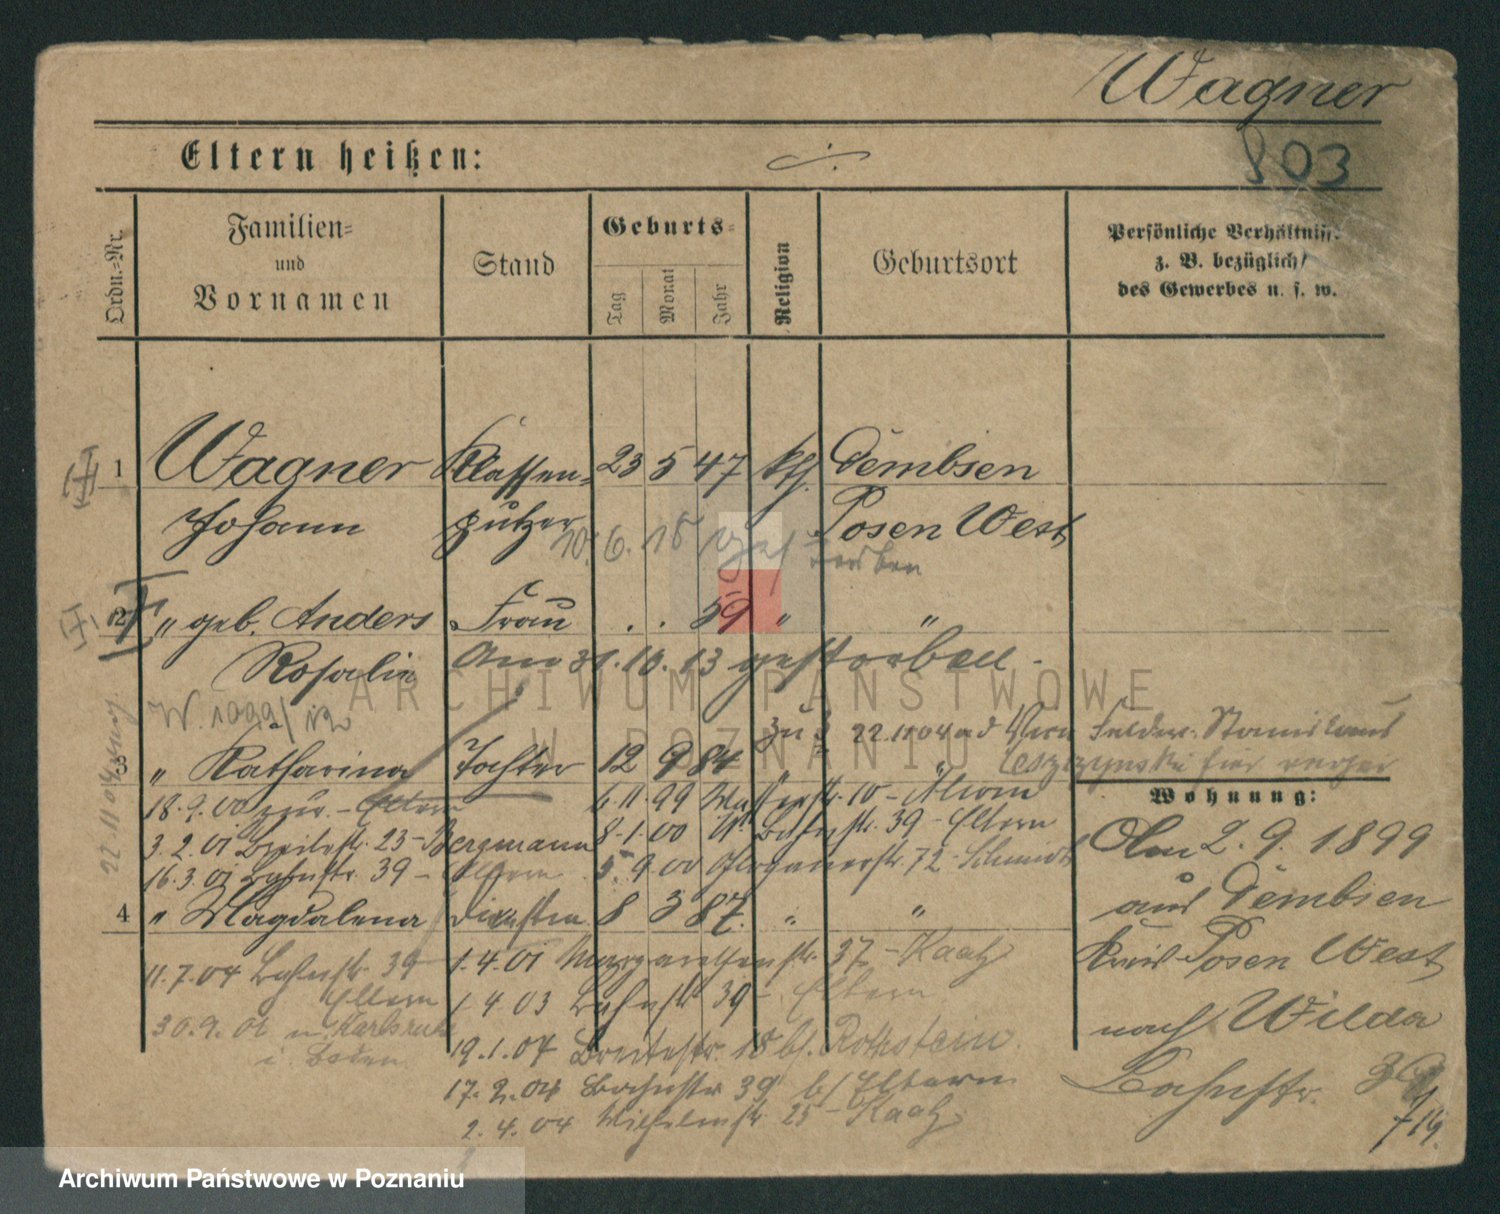 Wagner
803
Eltern heißen:
Ordn.=Nr.
Familien=
und
Vornamen
Stand
Geburts=
Tag
Monat
Jahr
Religion
Geburtsort
Persönliche Verhältniss
z. B. bezüglich
des Gewerbes u. s. w.
1 Wagner Klassen= 23 5 47 kth. Dembsen
Johann putzer Posen West
20. 6. 15 gestorben
2 " geb. Anders Frau . . 59 " "
Rosalie Am 31. 10. 13 gestorben.
W. 1099/12
zu 3 22.11.04 Stanislaus
Leszczynski
3 " Katharina Tochter 12 9 84 " "
18.9.00 zur. - Eltern 6.11.99 10 -
Wohnung:
3.2.01 Breitestr. 23 - Bergmann 8.1.00 Bahnstr. 39 - Eltern
16.3.01 Bahnstr. 39 - Eltern 5.9.00 72 - Schmidt
22.11.04
4 " Magdalena 8 3 87. " "
Am 2. 9. 1899
aus Dembsen
Kreis Posen West
nach Wilda
Bahnstr. 39
11.7.04 Bahnstr. 39 1.4.01 Margarethenstr. 37 - Kaatz
Eltern 1.4.03 Bahnstr. 39 - Eltern
30.9.01 n. Karlsruhe
i. Baden 19.1.04 Breitestr. 18 b/. Rothstein.
17.2.04 Bahnstr. 39 b/ Eltern
2.4.04 Wilhelmstr. 25 - Kaatz
ARCHIWUM PAŃSTWOWE
W POZNANIU
Archiwum Państwowe w Poznaniu